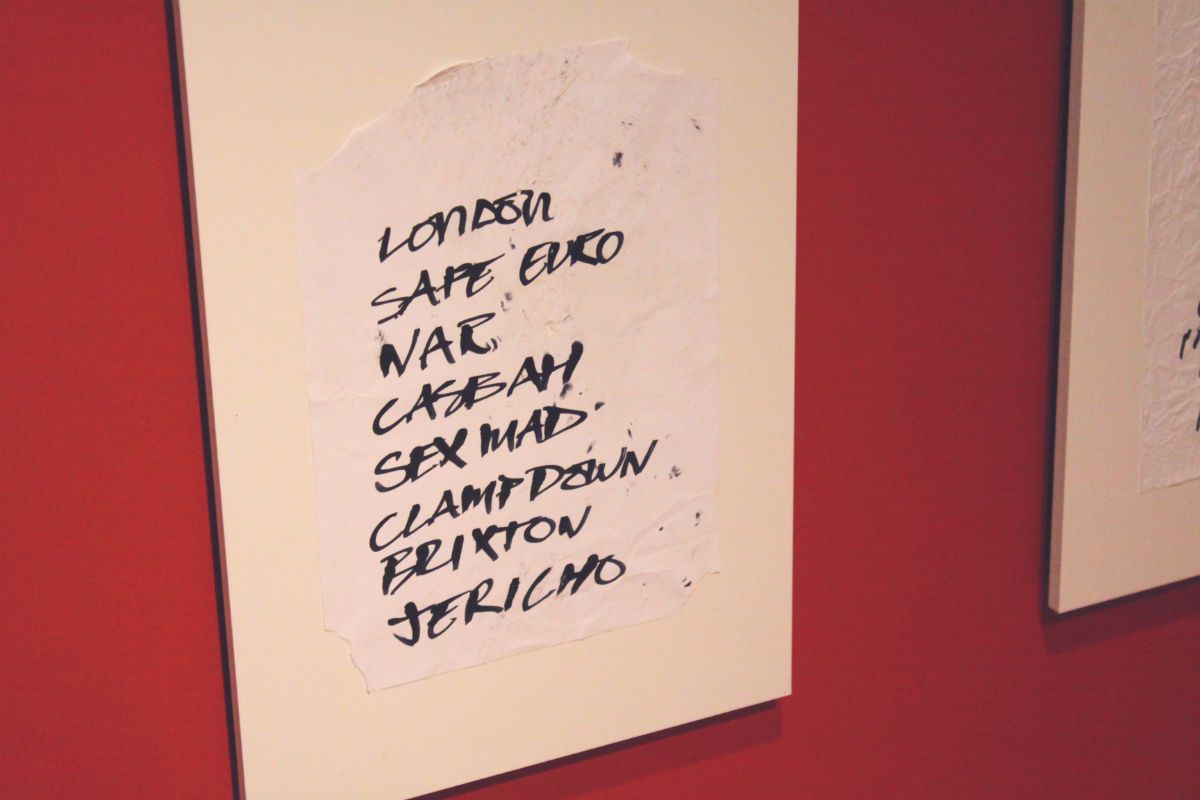 LONDON
SAFE EURO
WAR
CASBAH
SEX MAD
CLAMPDOWN
BRIXTON
JERICHO